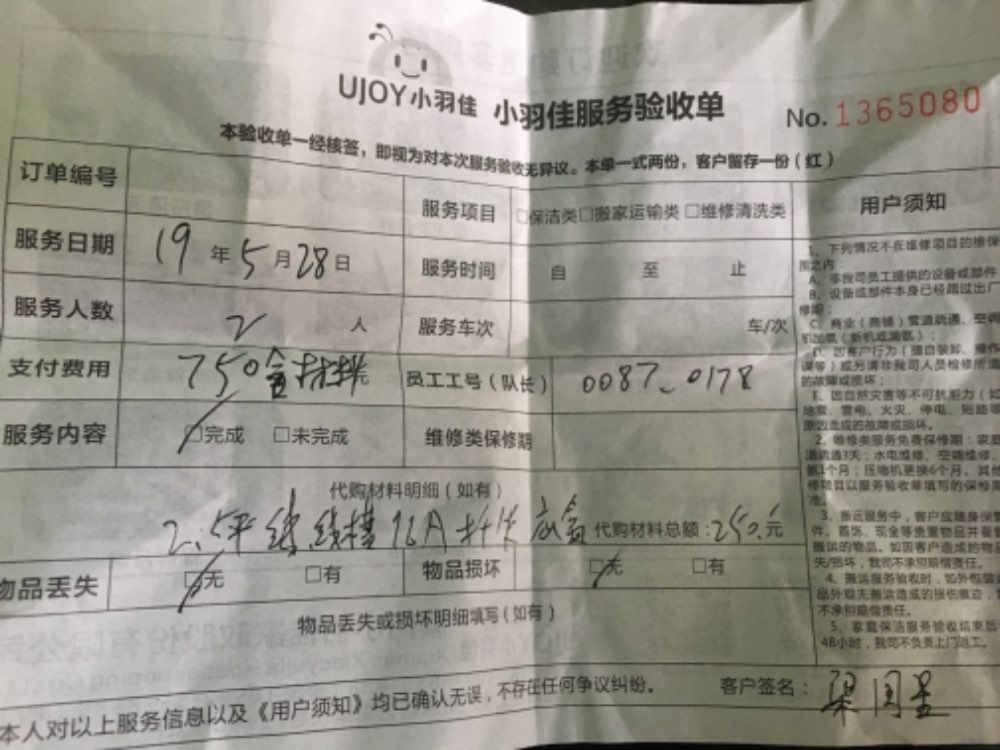 UJOY小羽佳 小羽佳服务验收单 No. 1365080
本验收单一经核签，即视为对本次服务验收无异议。本单一式两份，客户留存一份（红）
订单编号 服务项目 □保洁类□搬家运输类□维修清洗类
服务日期 19年5月28日 服务时间 自 至 止
服务人数 2 人 服务车次 车/次
支付费用 750含材料 员工工号（队长） 0087、0178
服务内容 □完成 □未完成 维修类保修期
代购材料明细（如有）
2.5平线 线槽 16A 开关 底盒 代购材料总额：250元
物品丢失 □无 □有 物品损坏 □无 □有
物品丢失或损坏明细填写（如有）
本人对以上服务信息以及《用户须知》均已确认无误，不存在任何争议纠纷。 客户签名：
用户须知
1、下列情况不在维修项目的维保
围之内：
A、非我司员工提供的设备或部件
B、设备或部件本身已经超过出厂
修期；
C、商业（商铺）管道疏通、空调
机加氨（新机或漏氨）；
D、因客户行为（擅自装卸、操作
误等）或另请非我司人员检修所造
的故障或损坏；
E、因自然灾害等不可抗拒力（如
地震、雷电、火灾、停电、短路等
原因造成的故障或损坏。
2、维修类服务免费保修期：家庭
道疏通3天；水电维修、空调维修、
氨1个月；压缩机更换6个月。其他
修项目以服务验收单填写的保修期
准。
3、搬运服务中，客户应随身保管
件、首饰、现金等贵重物品并看管
搬运的物品。如因客户造成的物品
失/损坏，我司不承担赔偿责任。
4、搬运服务验收时，如外包装
品外观无搬运造成的损伤痕迹，
不承担赔偿责任。
5、家庭保洁服务验收结束后
48小时，我司不负责上门返工。